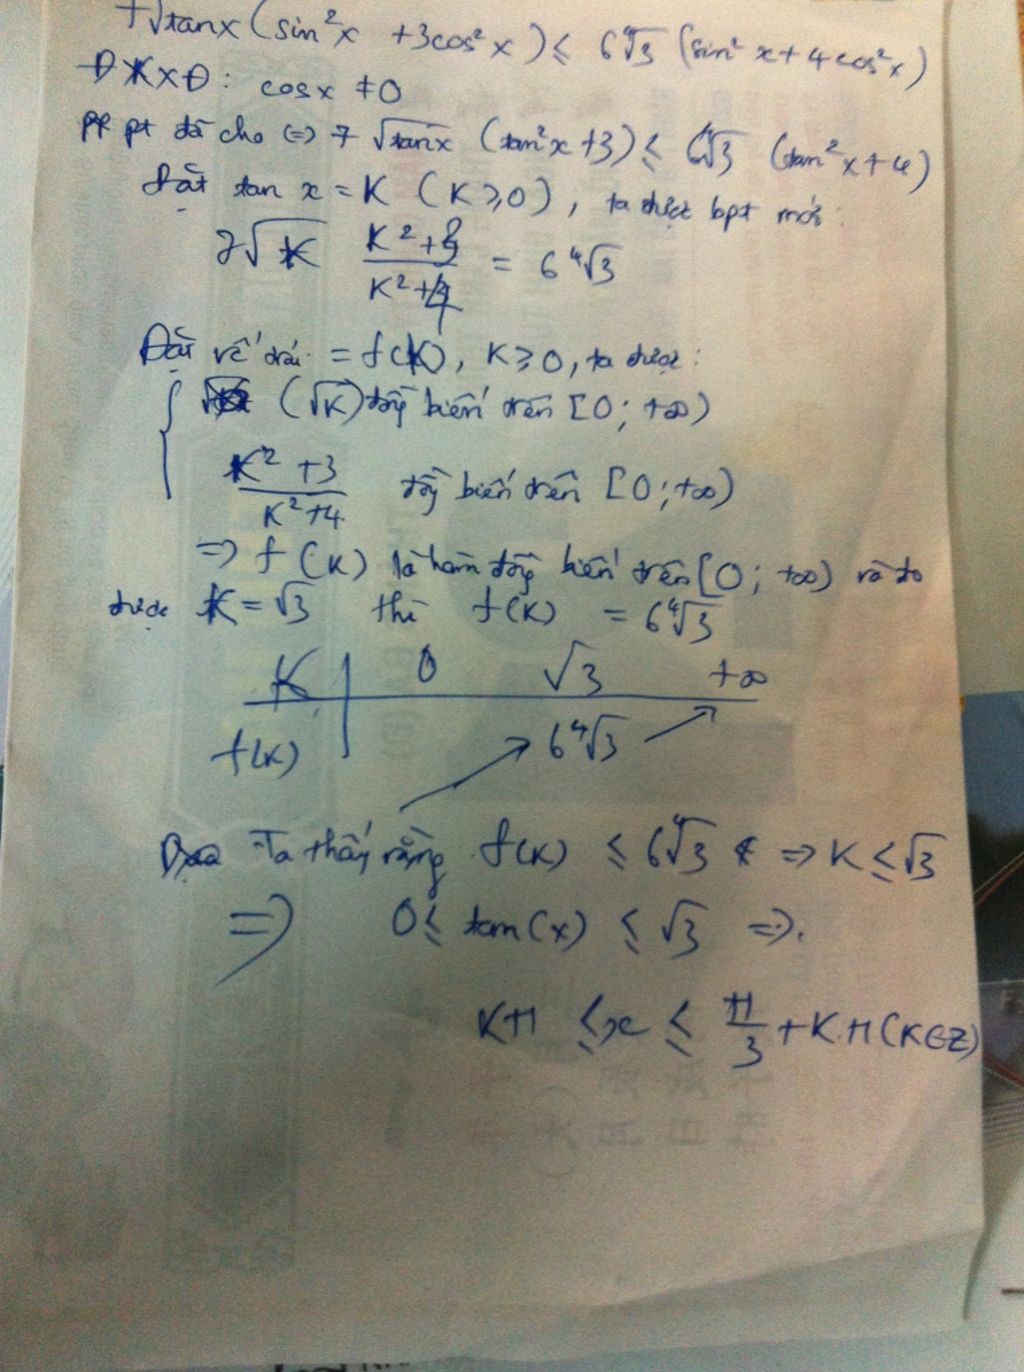 7√tanx (sin²x + 3cos²x) ≤ 6∜3 (sin²x + 4cos²x)
ĐKXĐ: cosx ≠ 0
pt đã cho (=) 7 √tanx (tan²x+3) ≤ 6∜3 (tan²x+4)
Đặt tan x = K (K ≥ 0), ta được bpt mới:
7√K (K²+3)/(K²+4) = 6∜3
Đặt vế trái = f(K), K ≥ 0, ta được:
{ (√K) đồng biến trên [0; +∞)
(K²+3)/(K²+4) đồng biến trên [0; +∞)
=> f(K) là hàm đồng biến trên [0; +∞) và do
được K = √3 thì f(K) = 6∜3
K | 0 √3 +∞
f(K) | ↗ 6∜3 ↗
Ta thấy rằng f(K) ≤ 6∜3 => K ≤ √3
=> 0 ≤ tan(x) ≤ √3 =>.
Kπ ≤ x ≤ π/3 + Kπ (K∈Z)